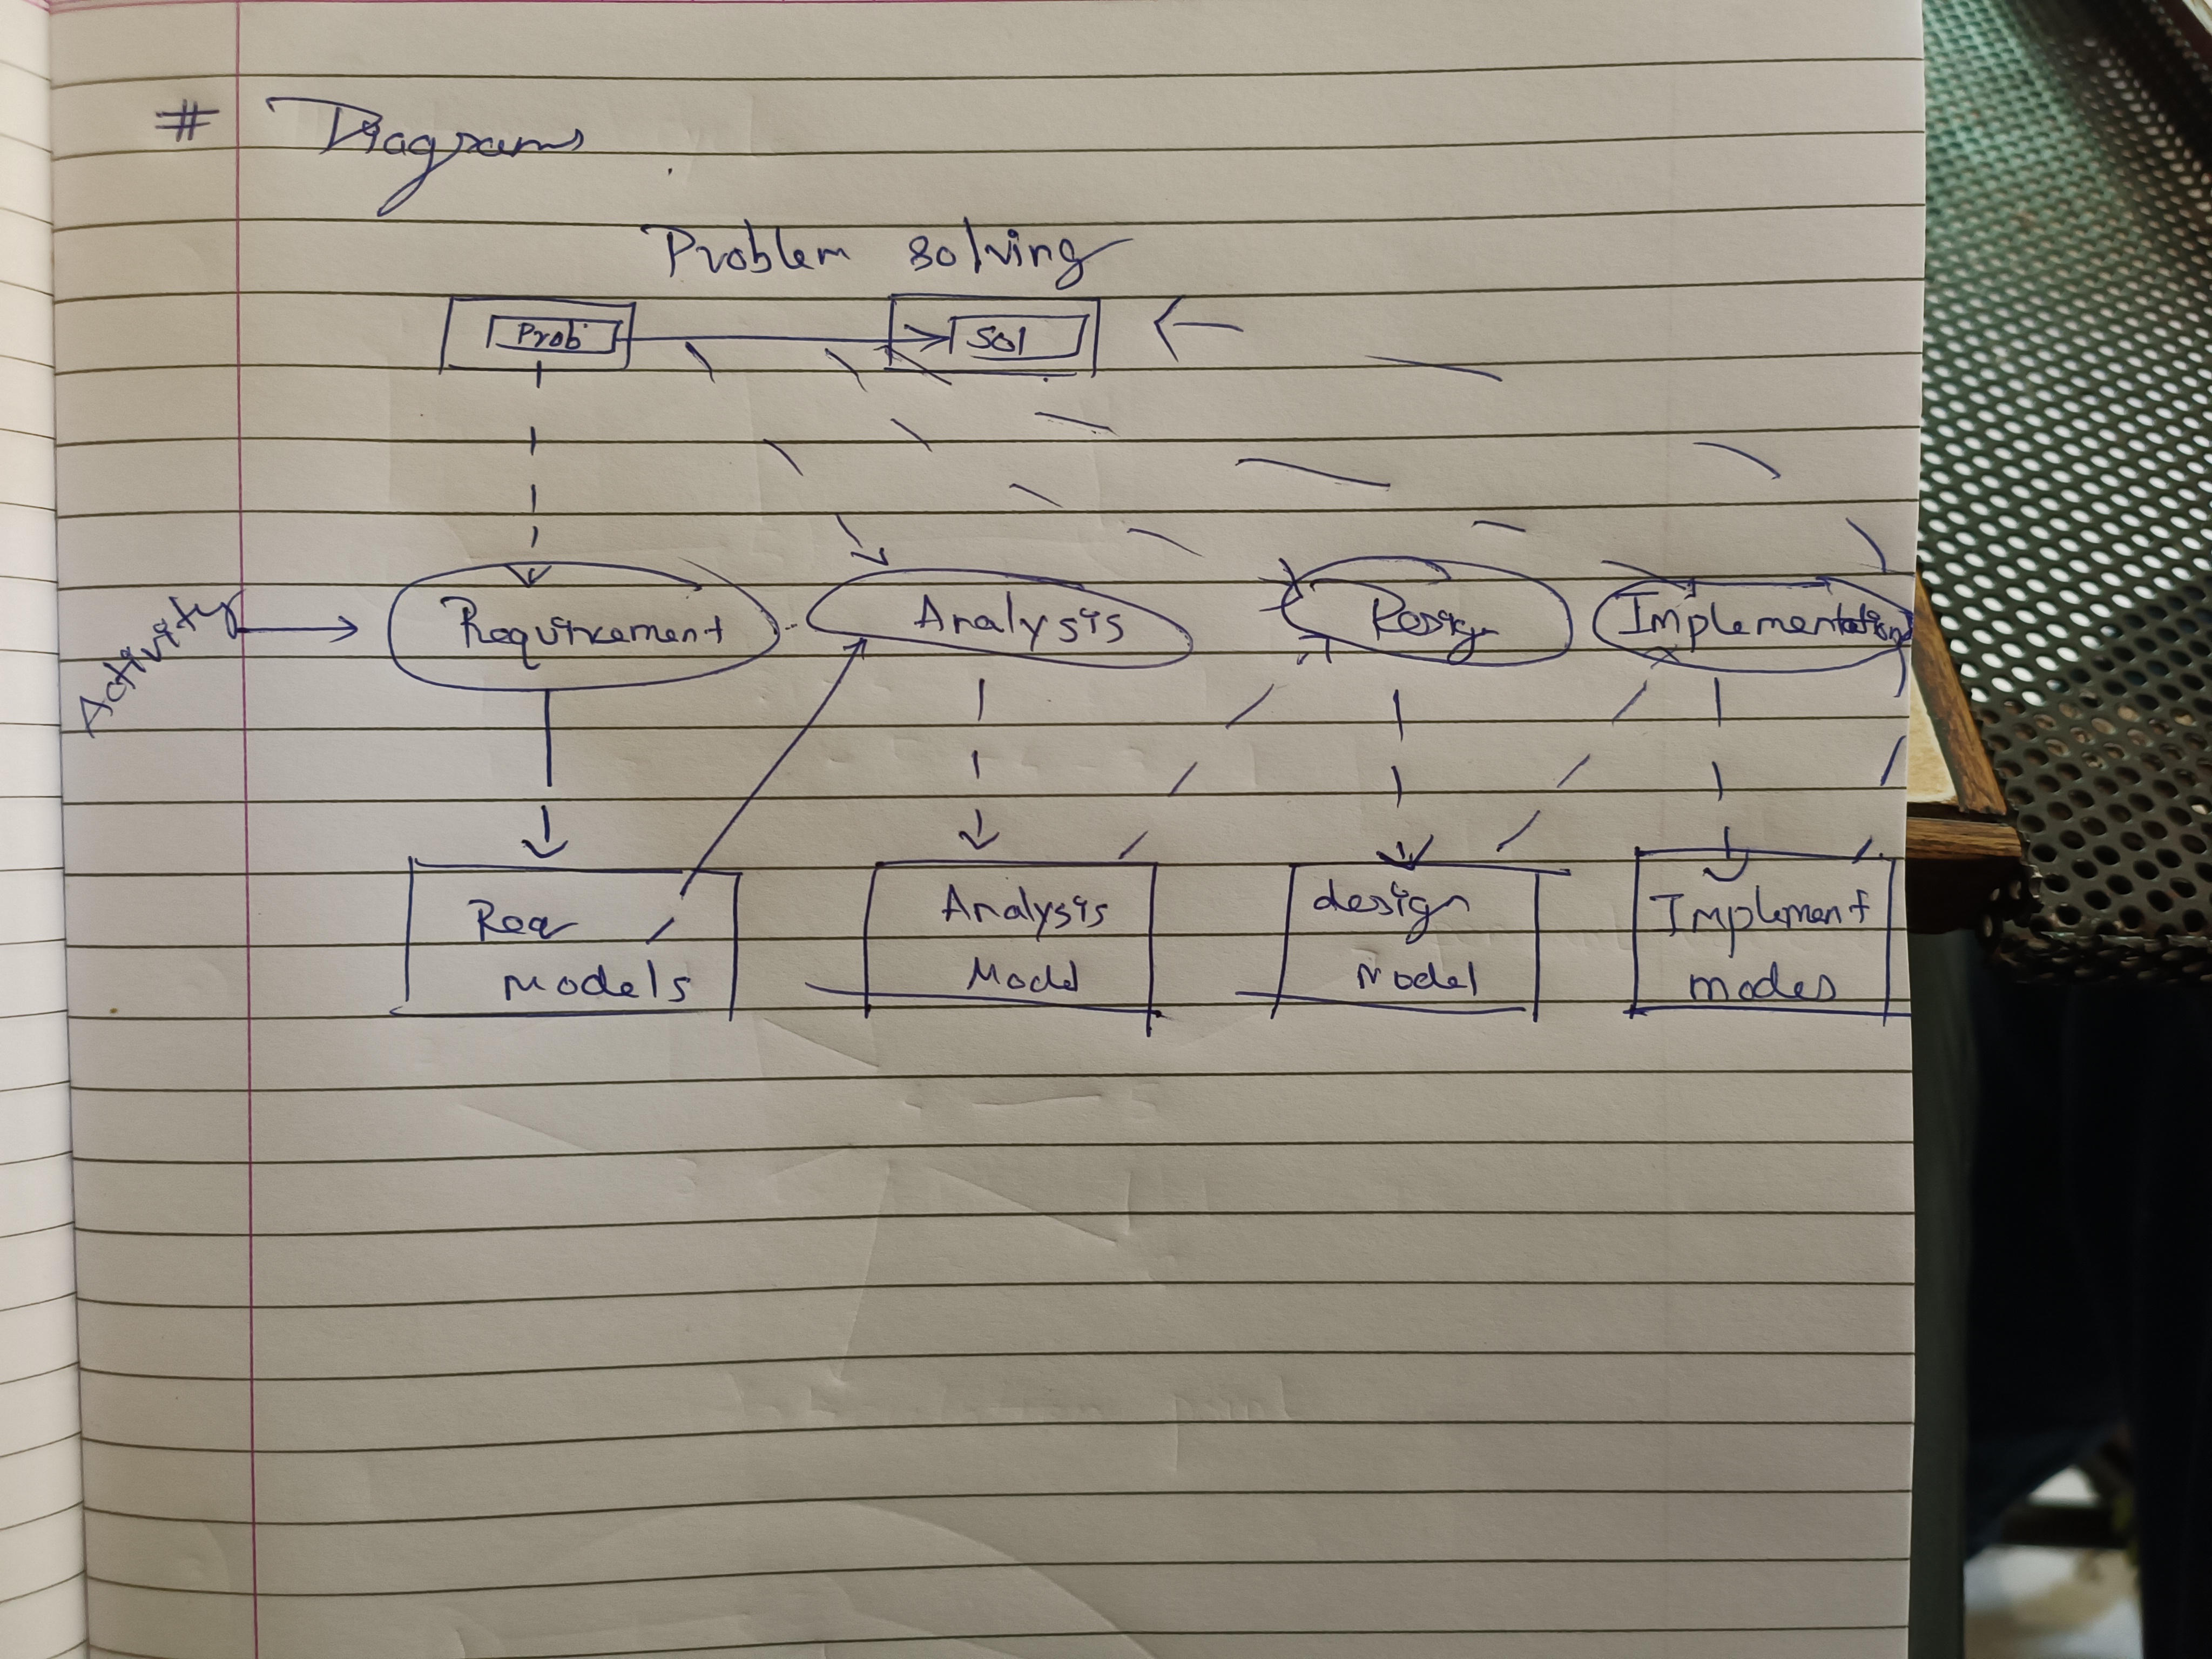 # Diagrams
Problem solving
Prob
Sol
Activity
Requirement
Analysis
Design
Implementation
Req
models
Analysis
Model
design
Model
Implement
modes